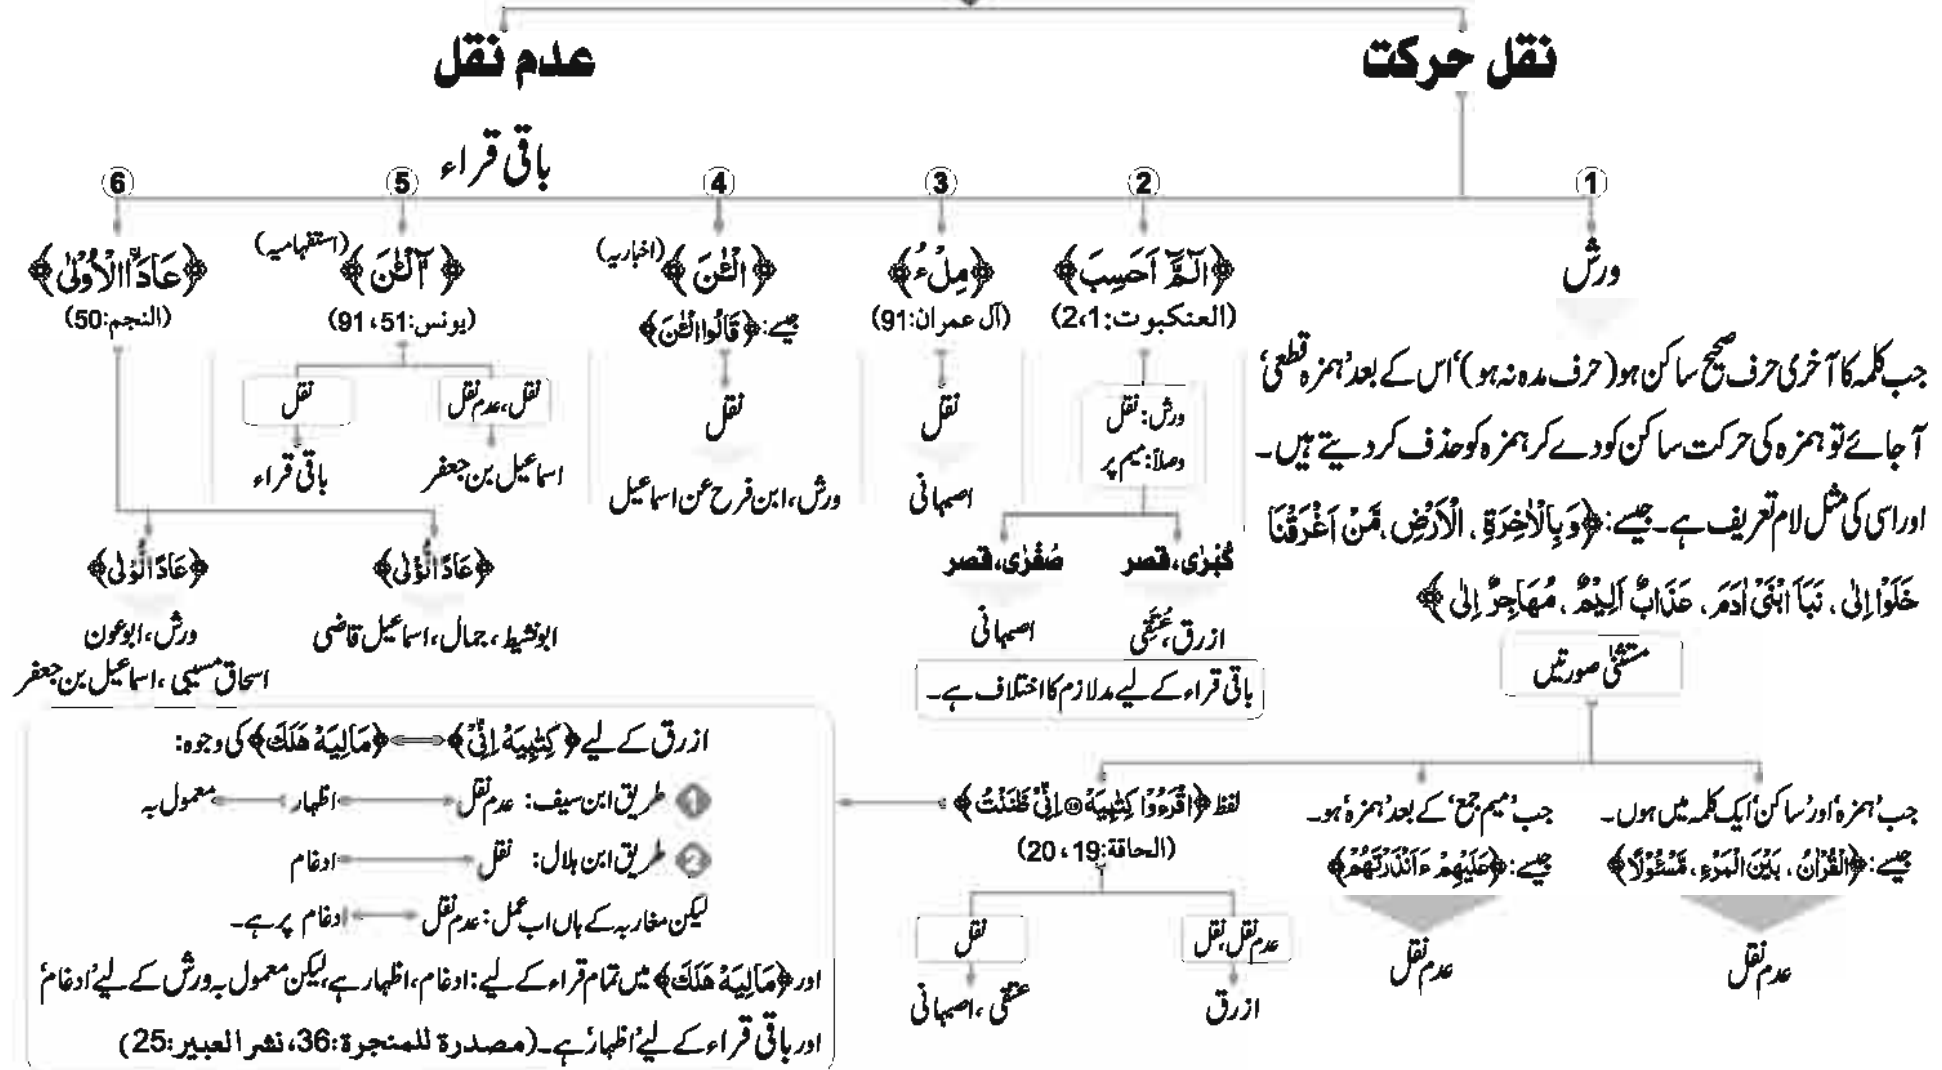 نقل حرکت
عدم نقل
باقی قراء
①
ورش
جب کلمہ کا آخری حرف صحیح ساکن ہو (حرف مدہ نہ ہو)' اس کے بعد 'ہمزہ قطعی'
آجائے تو ہمزہ کی حرکت ساکن کو دے کر ہمزہ کو حذف کر دیتے ہیں۔
اور اسی کی مثل لام تعریف ہے۔ جیسے: ﴿وَبِالْاٰخِرَةِ ، الْاَرْضِ ، مَّنْ اَغْرَقْنَا
خَلَوْا اِلٰى ، نَبَاَ ابْنَىْ اٰدَمَ ، عَذَابٌ اَلِيْمٌ ، مُهَاجِرٌ اِلٰى﴾
مستثنیٰ صورتیں
جب 'ہمزہ' اور 'ساکن' ایک کلمہ میں ہوں۔
جیسے: ﴿الْقُرْاٰنُ ، بَيْنَ الْمَرْءِ ، مَّسْئُوْلًا﴾
عدم نقل
جب 'میم جمع' کے بعد 'ہمزہ' ہو۔
جیسے: ﴿عَلَيْهِمْ ءَاَنْذَرْتَهُمْ﴾
عدم نقل
لفظ ﴿اقْرَءُوْا كِتٰبِيَهْ ⑲ اِنِّىْ ظَنَنْتُ﴾
(الحاقة:19، 20)
عدم نقل، نقل
ازرق
نقل
عتقی، اصبہانی
②
﴿الٓمّٓ اَحَسِبَ﴾
(العنكبوت:1،2)
ورش: نقل
وصلاً: میم پر
کُبْرٰی، قصر
ازرق، عُتقی
صُغْرٰی، قصر
اصبہانی
باقی قراء کے لیے مد لازم کا اختلاف ہے۔
③
﴿مِلْءُ﴾
(آل عمران:91)
نقل
اصبہانی
④
﴿الْئٰنَ﴾ (اخباریہ)
جیسے: ﴿قَالُوا الْئٰنَ﴾
نقل
ورش، ابن فرح عن اسماعیل
⑤
﴿آٰلْئٰنَ﴾ (استفہامیہ)
(يونس:51، 91)
نقل، عدم نقل
اسماعیل بن جعفر
نقل
باقی قراء
⑥
﴿عَادًا ۨالْاُوْلٰى﴾
(النجم:50)
﴿عَادًا لُّؤْلٰى﴾
ابونشیط، جمال، اسماعیل قاضی
﴿عَادًا لُّوْلٰى﴾
ورش، ابوعون
اسحاق مسیبی، اسماعیل بن جعفر
ازرق کے لیے ﴿كِتٰبِيَهْ اِنِّىْ﴾ ⟺ ﴿مَالِيَهْ هَلَكَ﴾ کی وجوہ:
1 طریق ابن سیف: عدم نقل ⟷ اظہار ⟷ معمول بہ
2 طریق ابن ہلال: نقل ⟷ ادغام
لیکن مغاربہ کے ہاں اب عمل: عدم نقل ⟷ ادغام پر ہے۔
اور ﴿مَالِيَهْ هَلَكَ﴾ میں تمام قراء کے لیے: ادغام، اظہار ہے، لیکن معمول بہ ورش کے لیے 'ادغام'
اور باقی قراء کے لیے 'اظہار' ہے۔ (مصدرة للمنجرة:36، نشر العبير:25)